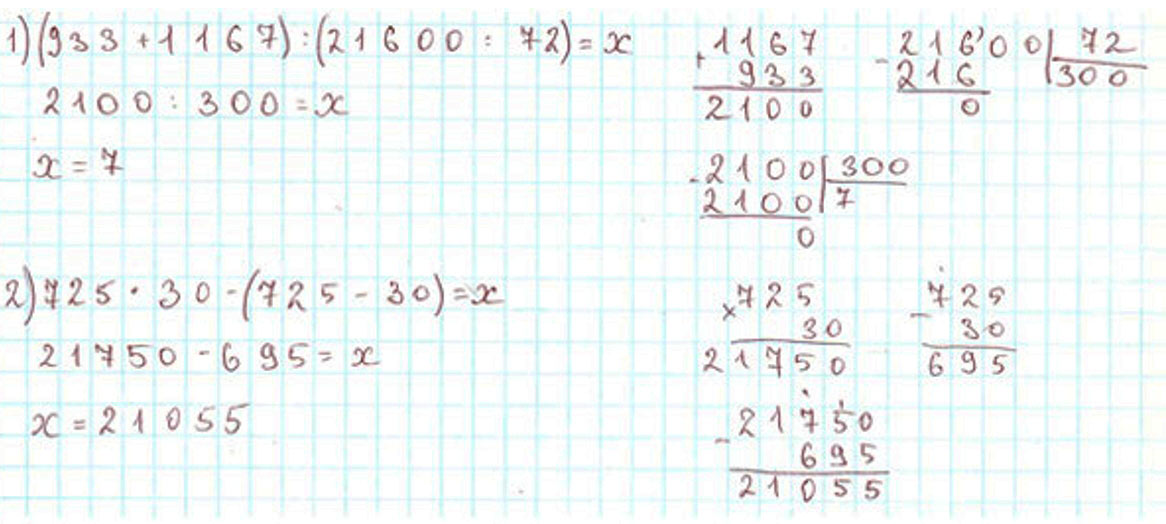 1) (933 + 1167) : (21600 : 72) = x
2100 : 300 = x
x = 7
+ 1167
933
2100
- 21600 | 72
216 | 300
0
- 2100 | 300
2100 | 7
0
2) 725 · 30 - (725 - 30) = x
21750 - 695 = x
x = 21055
x 725
30
21750
- 725
30
695
- 21750
695
21055